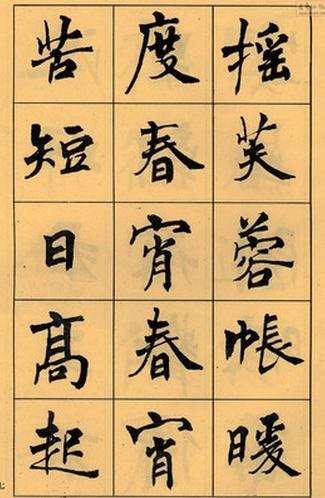 摇芙蓉帐暖
度春宵春宵
苦短日高起